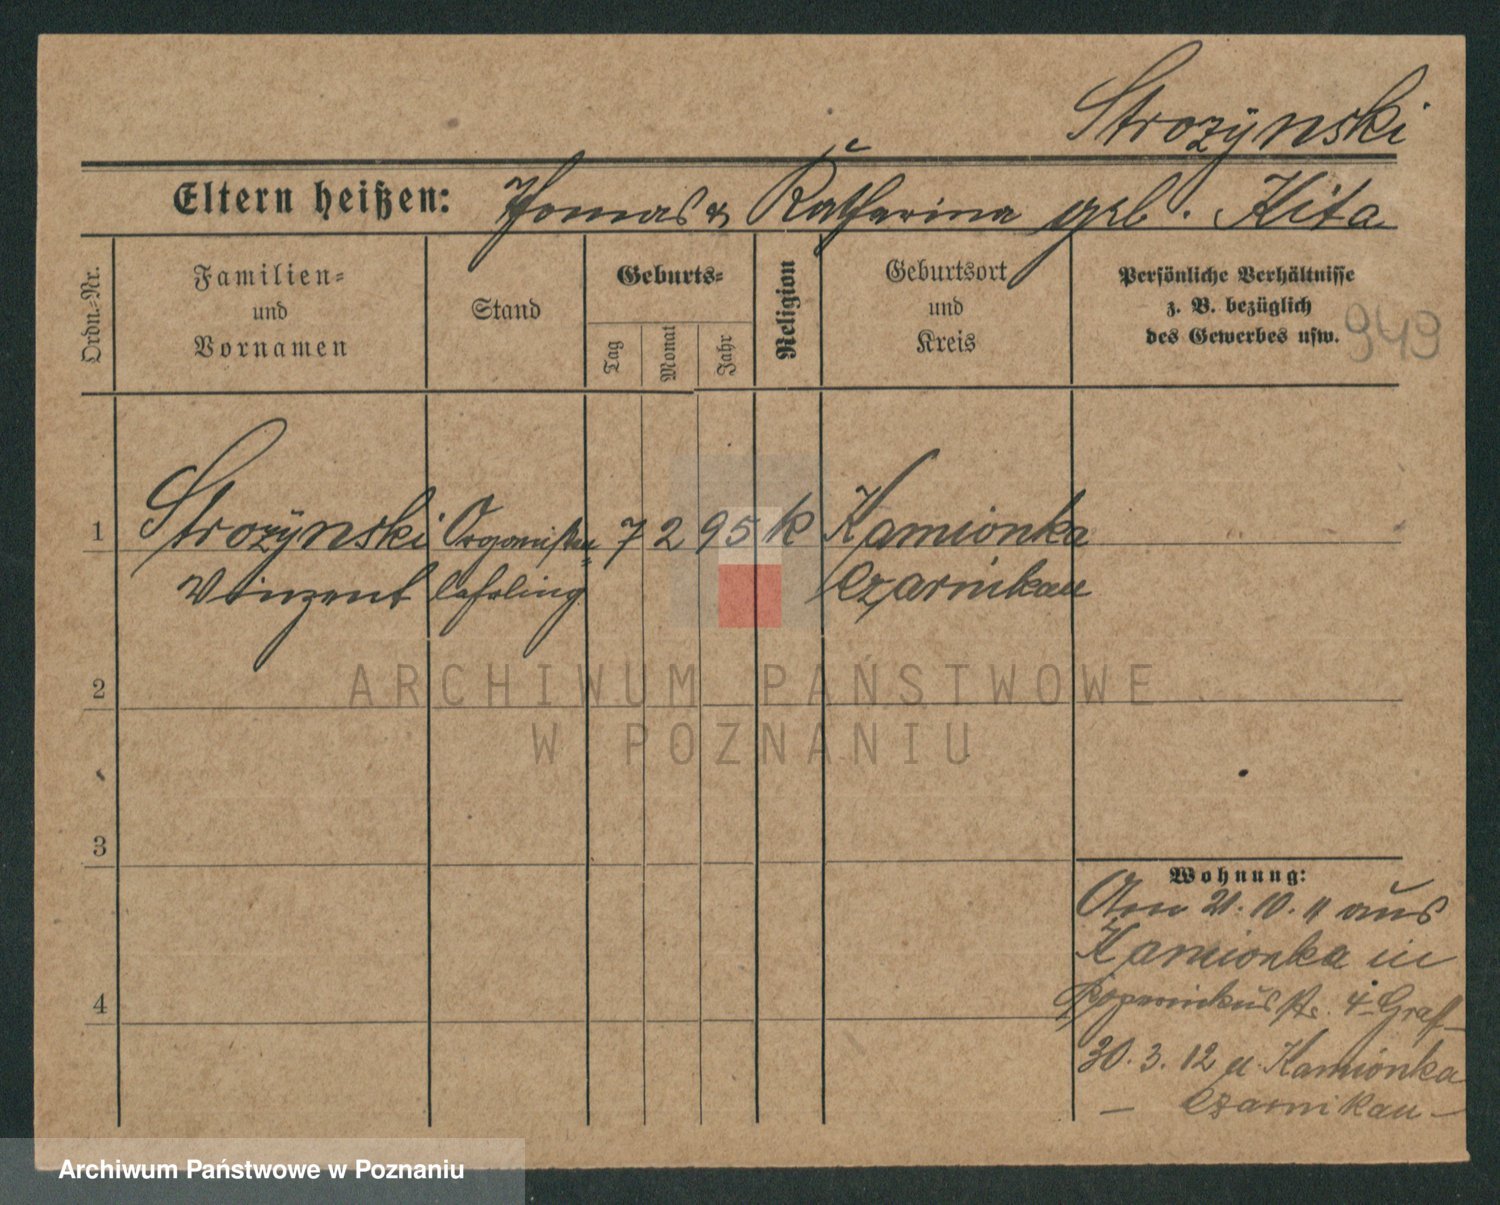 Strozynski
Eltern heißen: Thomas & Katharina geb. Kita
Ordn.-Nr.
Familien-
und
Vornamen
Stand
Geburts-
Tag
Monat
Jahr
Religion
Geburtsort
und
Kreis
Persönliche Verhältnisse
z. B. bezüglich
des Gewerbes usw.
949
1 Strozynski Organisten= 7 2 95 k Kamionka
Vinzent lehrling Czarnikau
ARCHIWUM PAŃSTWOWE
W POZNANIU
2
3
Wohnung:
Am 21. 10. 11 aus
Kamionka in
Kopernikusstr. 4 Graf
4
30. 3. 12 n. Kamionka
— Czarnikau —
Archiwum Państwowe w Poznaniu